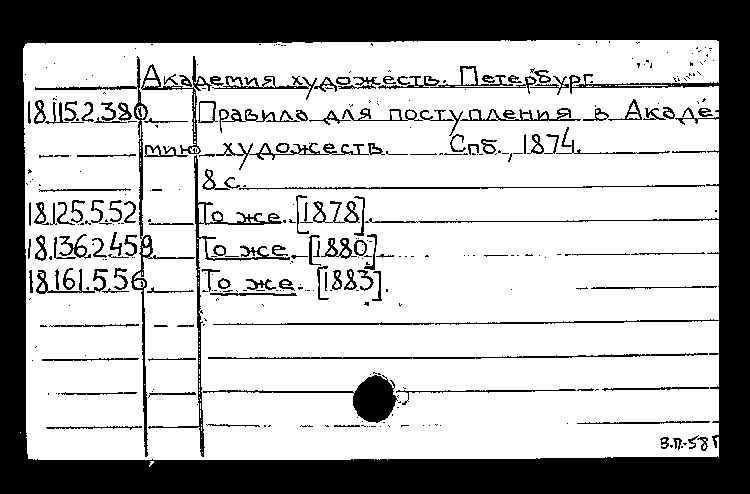 Академия художеств. Петербург.
18.115.2.380. Правила для поступления в Акаде-
мию художеств. Спб., 1874.
8 с.
18.125.5.52. То же. [1878].
18.136.2.459. То же. [1880].
18.161.5.56. То же. [1883].
В.П.-58г